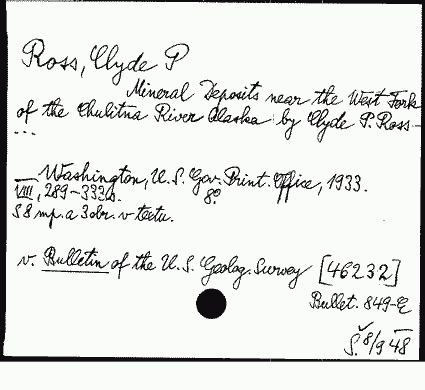 Ross, Clyde P
Mineral Deposits near the West Fork
of the Chulitna River Alaska by Clyde P. Ross —
...
— Washington, U.S. Gov. Print. Office, 1933.
VIII, 289–333 s. 8º
S 8 mp. a 3 obr. v textu.
v. Bulletin of the U.S. Geolog. Survey [46232]
Bullet. 849-E
S. 8/9 48